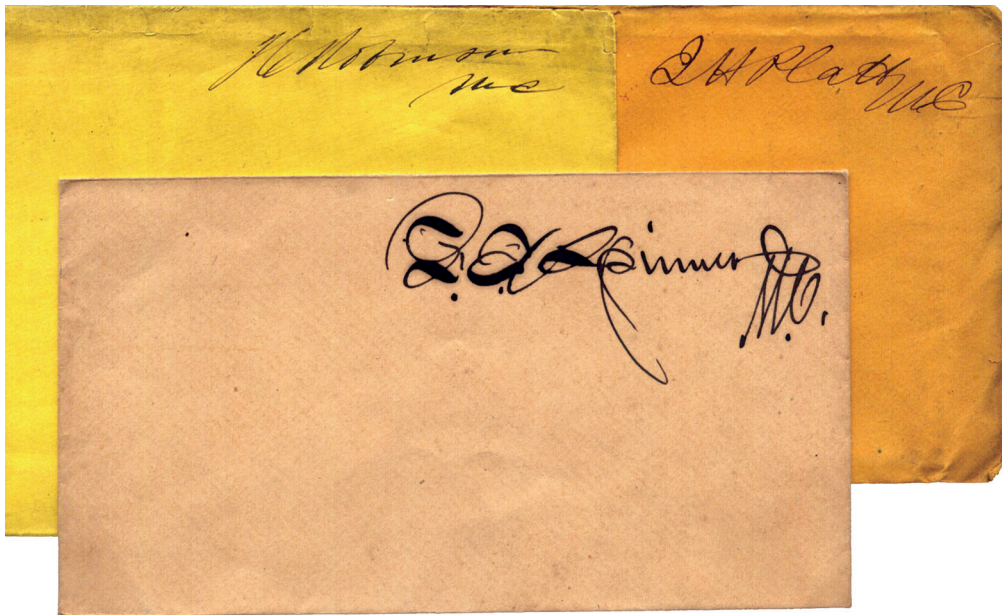 Robinson
MC
J H Platt
MC
F. E. Spinner
M.C.